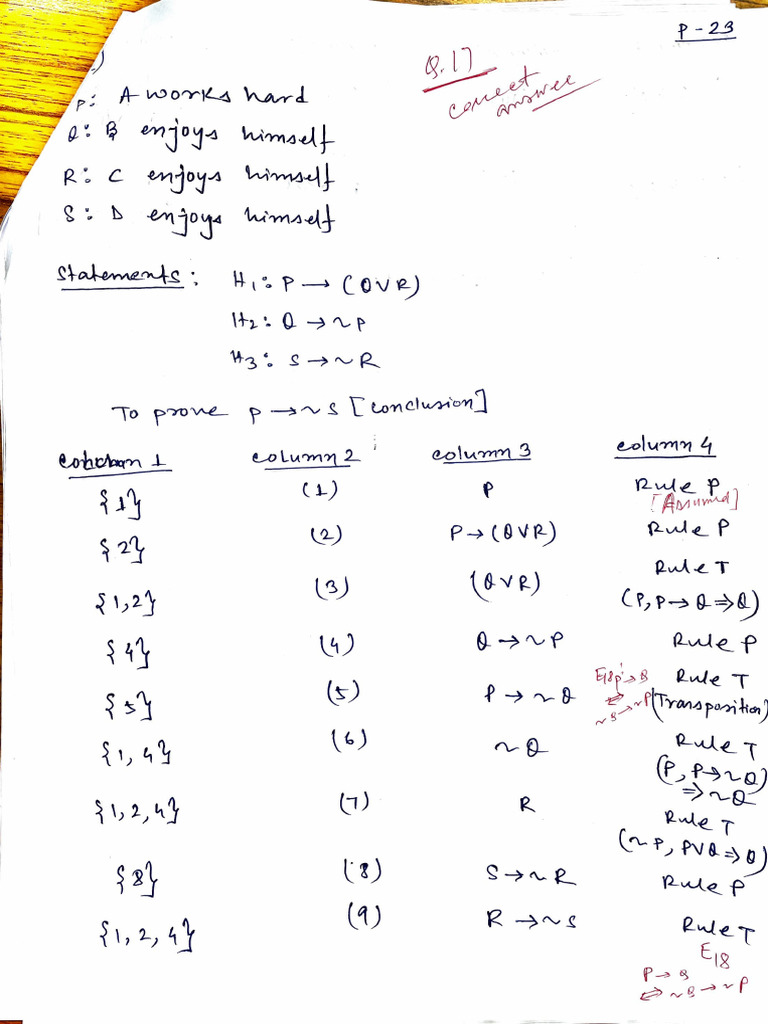 P-23
Q.17
correct
answer
P: A works hard
Q: B enjoys himself
R: C enjoys himself
S: D enjoys himself
Statements: H1: P → (Q V R)
H2: Q → ~P
H3: S → ~R
To prove P → ~S [Conclusion]
Column 1 column 2 column 3 column 4
{1} (1) P Rule P
[Assumed]
{2} (2) P → (Q V R) Rule P
{1,2} (3) (Q V R) Rule T
(P, P → Q ⇒ Q)
{4} (4) Q → ~P Rule P
{5} (5) P → ~Q Rule T
(Transposition)
E18 P → Q
⇔
~Q → ~P
{1, 4} (6) ~Q Rule T
(P, P → ~Q)
⇒ ~Q
{1, 2, 4} (7) R Rule T
(~P, P V Q ⇒ Q)
{8} (8) S → ~R Rule P
{1, 2, 4} (9) R → ~S Rule T
E18
P → Q
⇔ ~Q → ~P